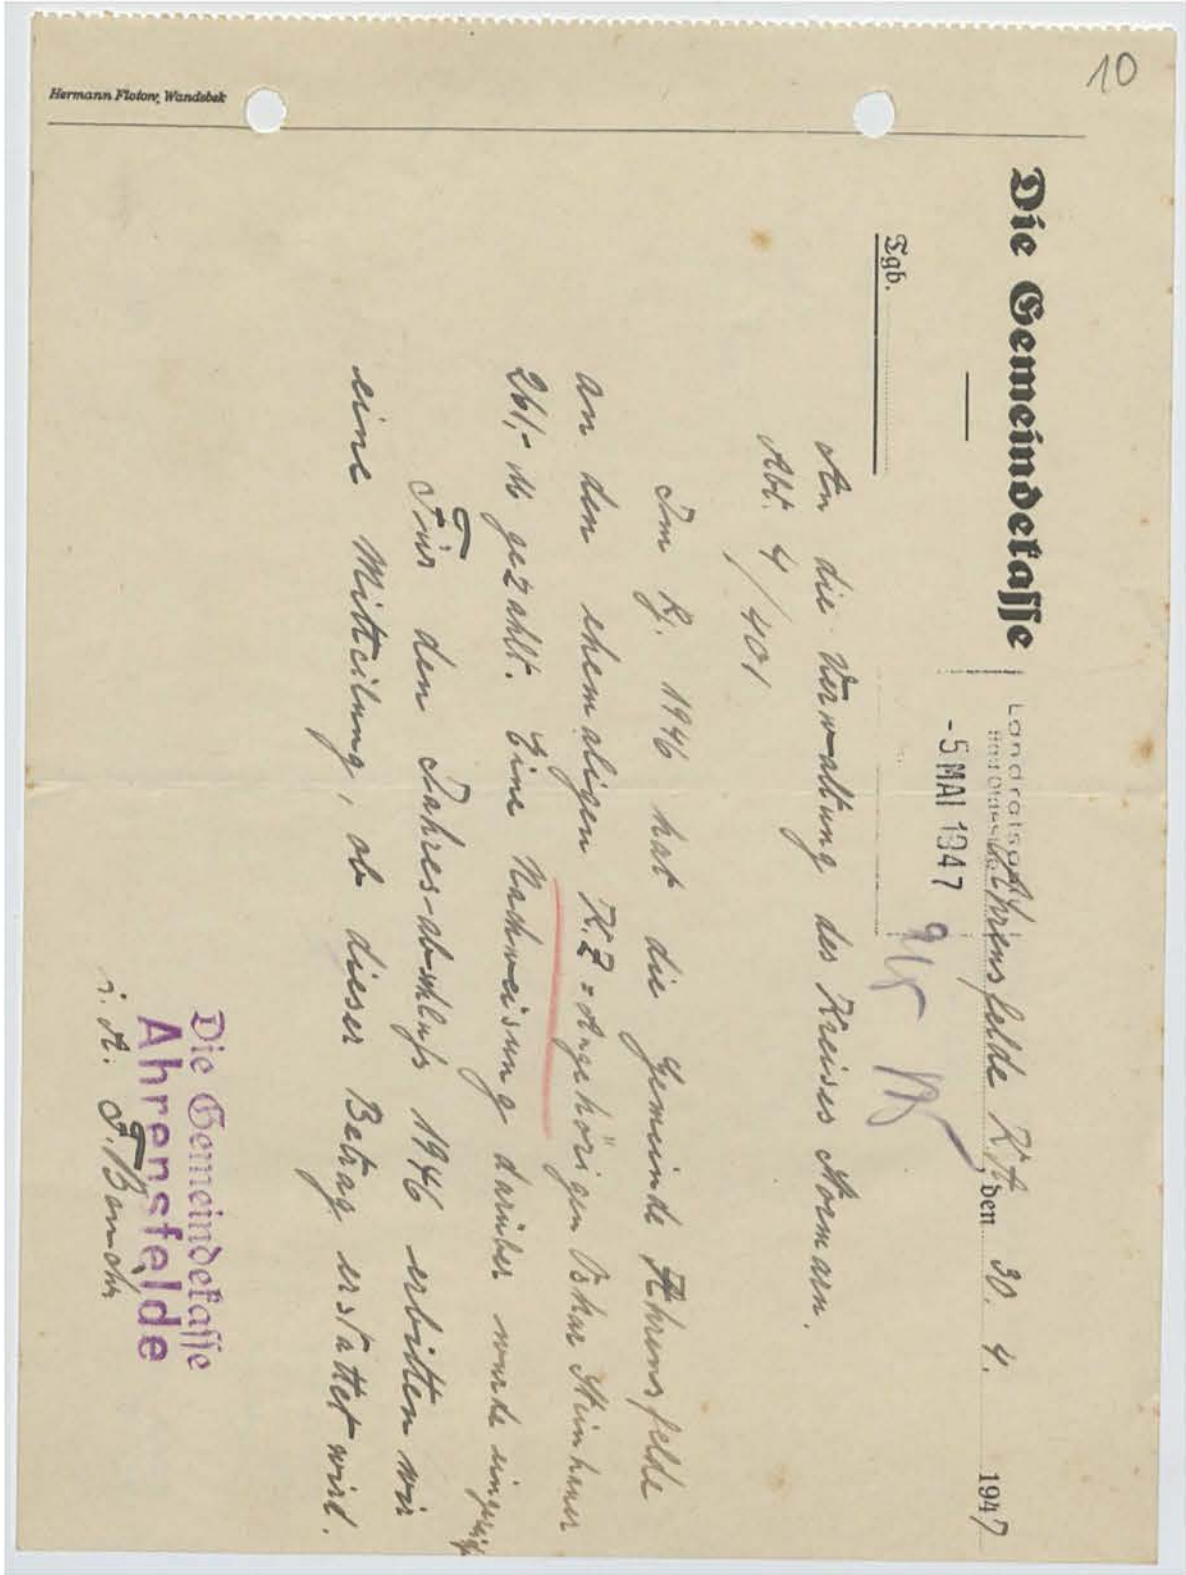 10
Hermann Flotow, Wandsbek
Die Gemeindekasse
Landratsamt
Bad Oldesloe
-5. MAI 1947
Ahrensfelde, den 30. 4. 1947
Tgb.
An die Verwaltung des Kreises Stormarn.
Abt. 4/401
Im Rj. 1946 hat die Gemeinde Ahrensfelde
an den ehemaligen K.Z.=Angehörigen Oskar
261,- M gezahlt. Eine Nachweisung darüber wurde eingereicht
Für den Jahres-abschluß 1946 erbitten wir
eine Mitteilung, ob dieser Betrag erstattet wird.
Die Gemeindekasse
Ahrensfelde
i. A.